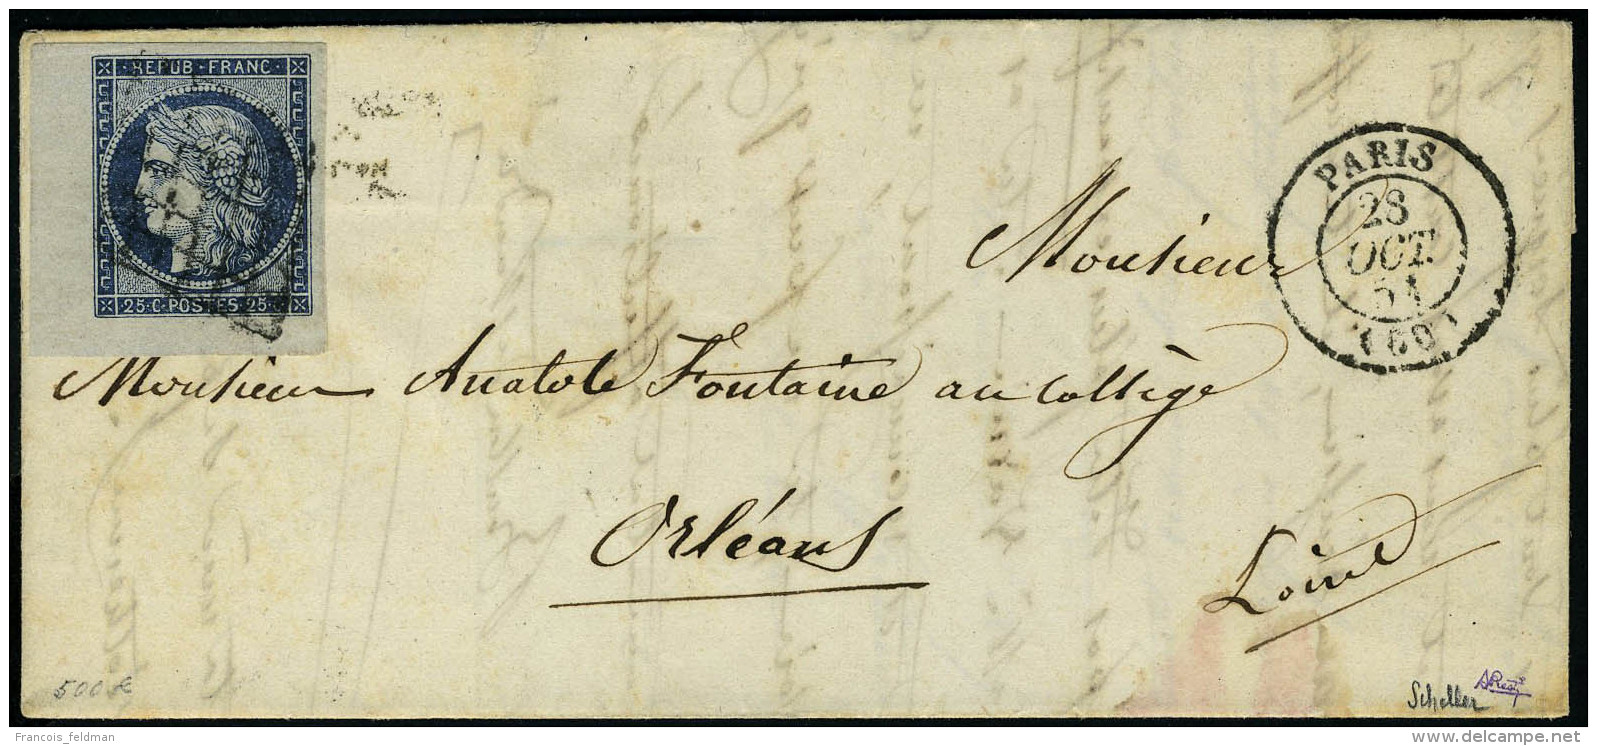 REPUB·FRANC·
25·C·POSTES·25·C
PARIS
28
OCT.
51
(60)
Monsieur
Monsieur Anatole Fontaine au collège
Orléans
Loiret
500 €
Scheller
Francois_feldman
delcampe.net